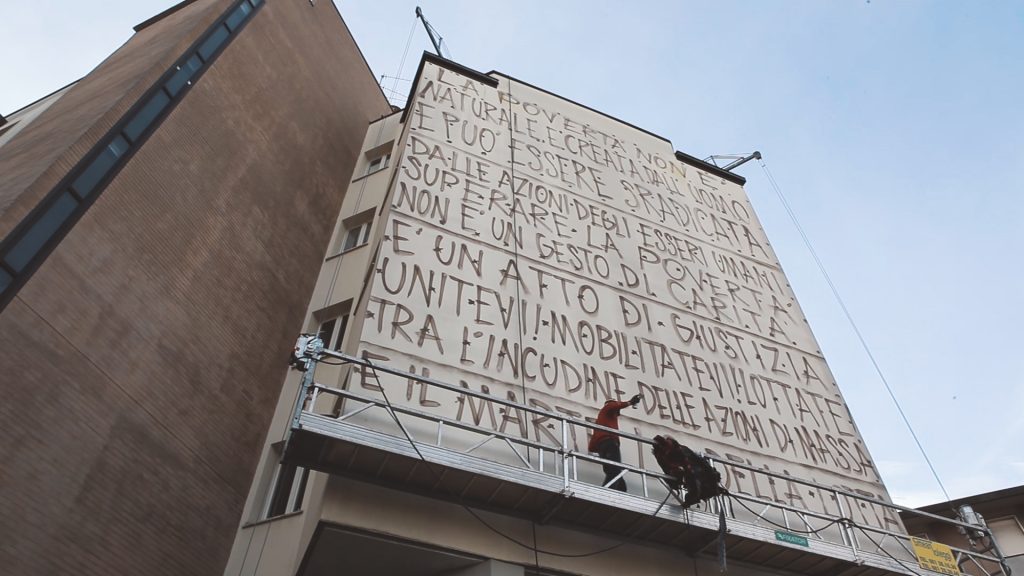 LA POVERTA' NON E'
NATURALE E' CREATA DALL'UOMO
E PUO' ESSERE SRADICATA
DALLE AZIONI DEGLI ESSERI UMANI.
SUPERARE LA POVERTA'
NON E' UN GESTO DI CARITA'
E' UN ATTO DI GIUSTIZIA.
UNITEVI! MOBILITATEVI! LOTTATE!
TRA L'INCUDINE DELLE AZIONI DI MASSA
E IL MART DELLA LOTTA
FIXATORI